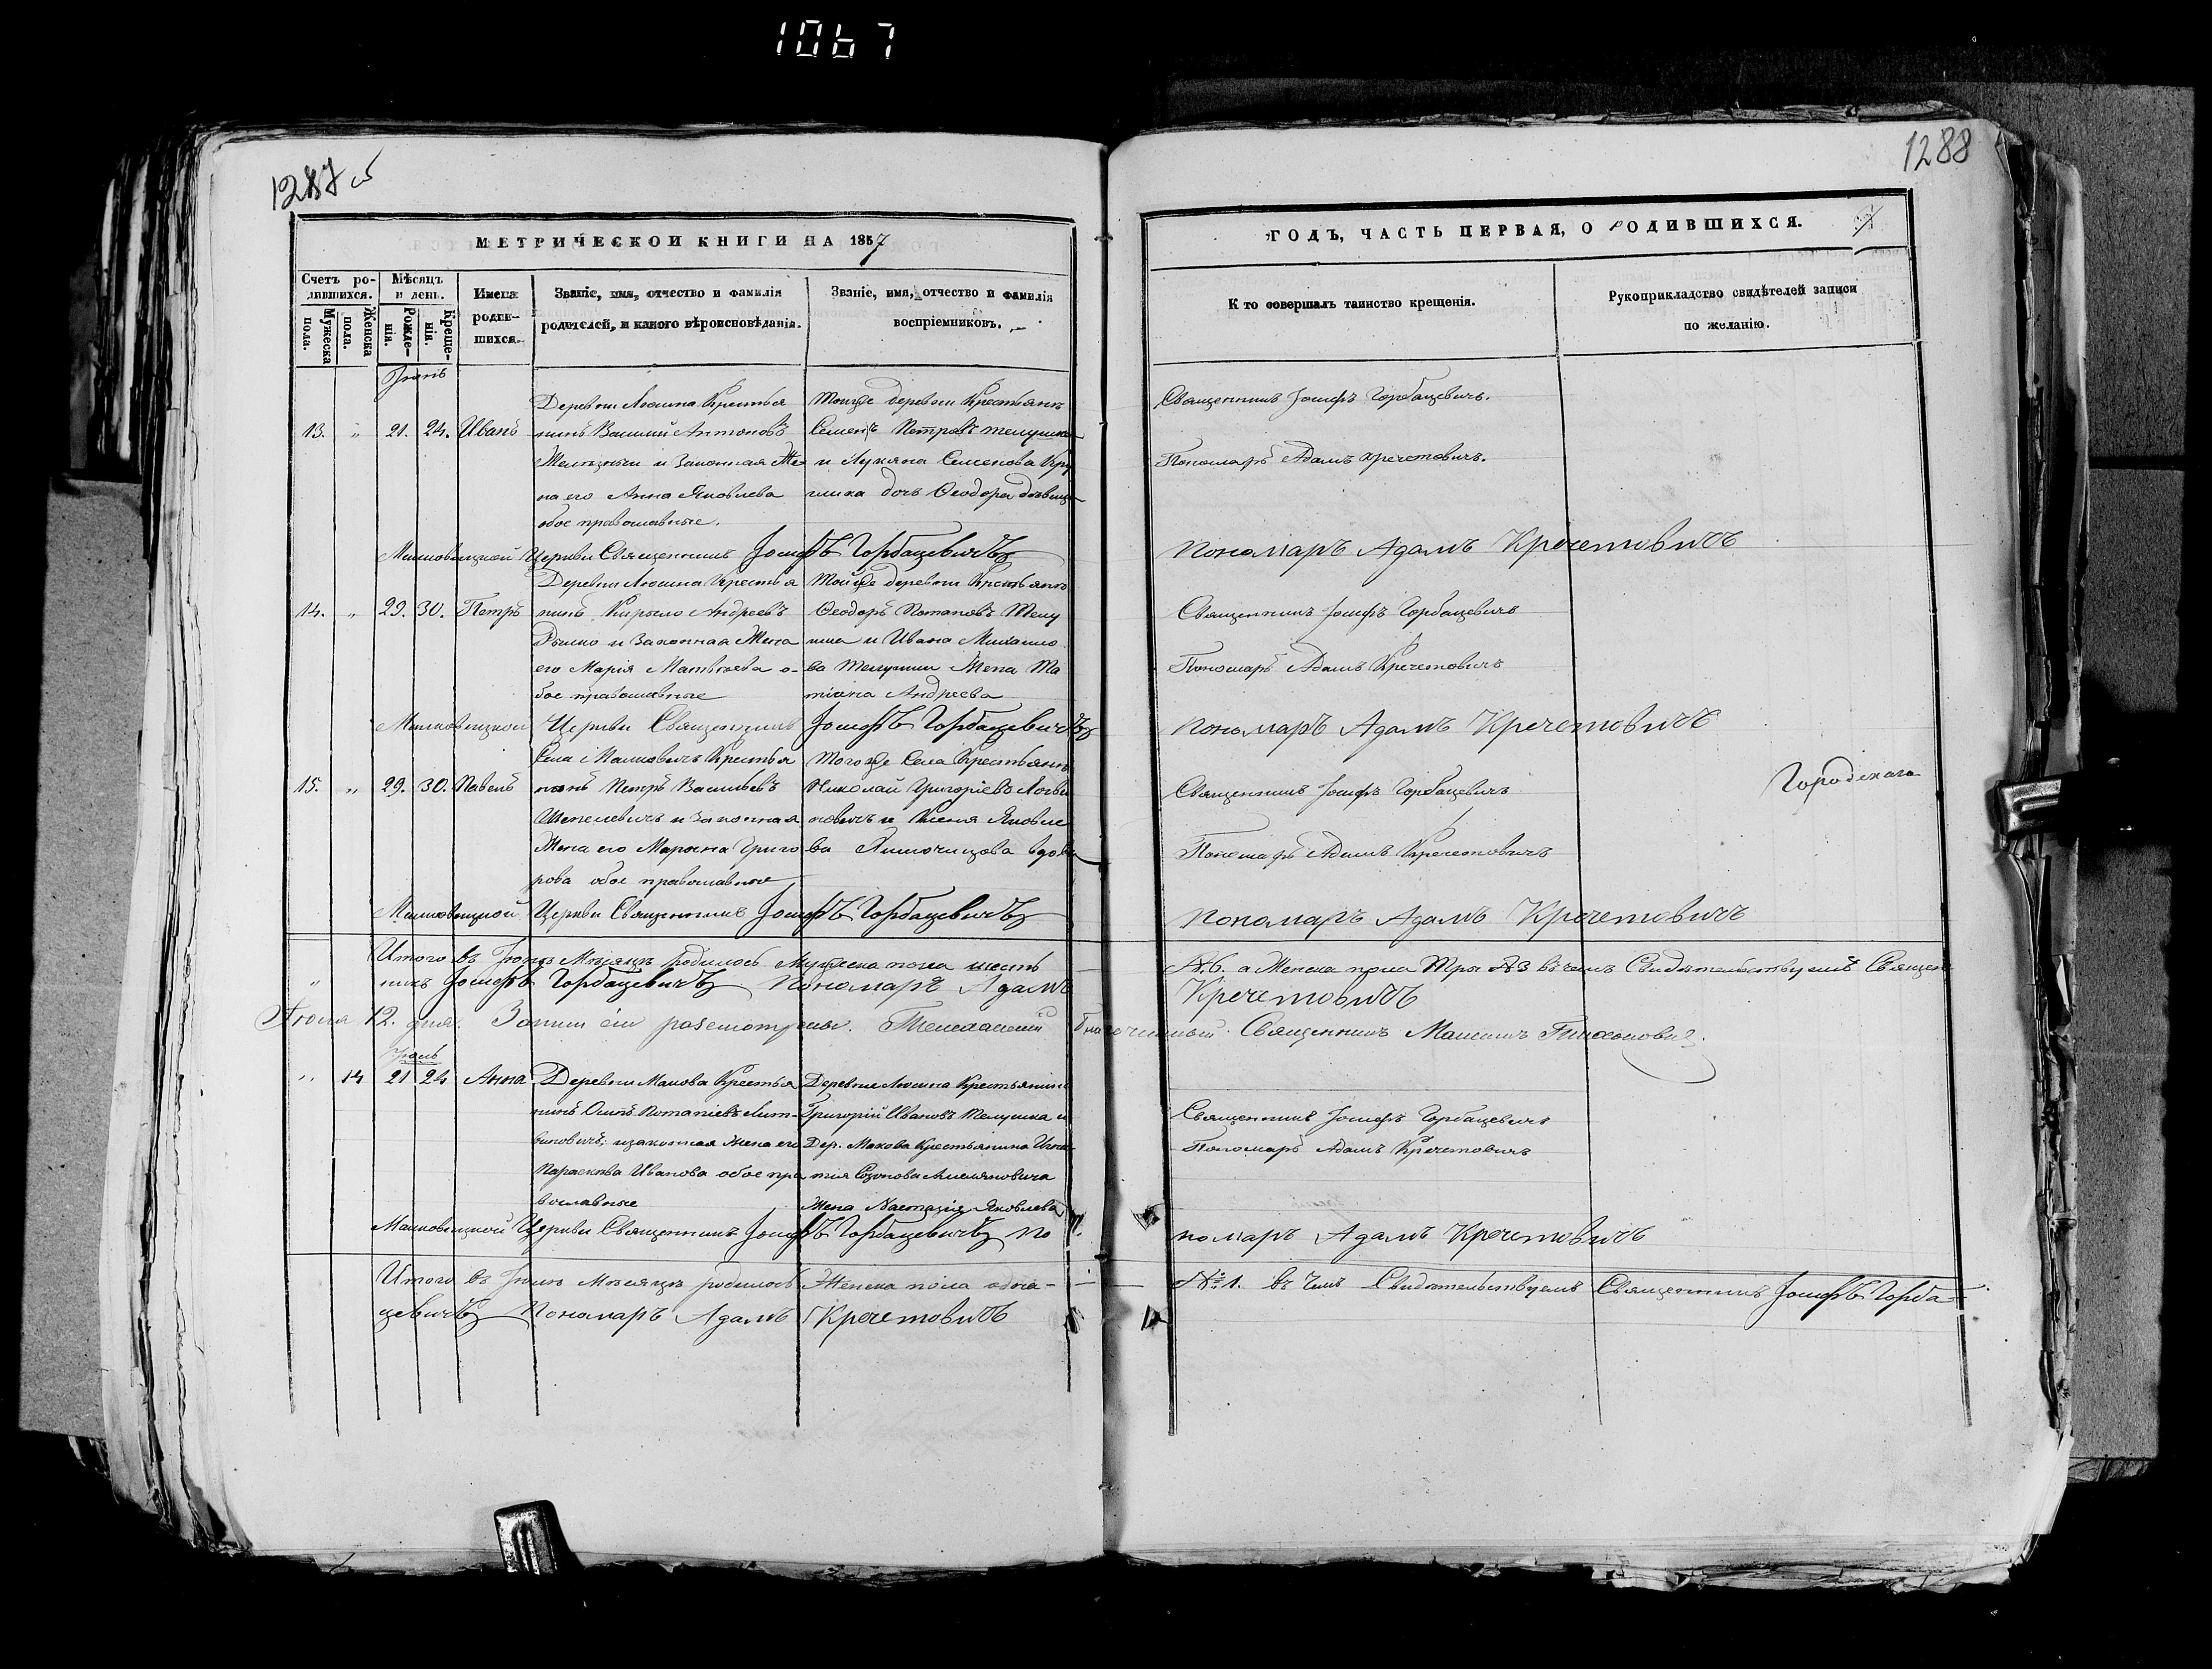 1067
1287 об
1288
МЕТРИЧЕСКОЙ КНИГИ НА 1857
Счетъ ро-
дившихся.
Мужеска пола.
Женска пола.
Мѣсяцъ
и день.
Рожде-
нія.
Креще-
нія.
Имена
роди-
шихся.
Званіе, имя, отчество и фамилія
родителей, и какого вѣроисповѣданія.
Званіе, имя, отчество и фамилія
воспріемниковъ.
ГОДЪ, ЧАСТЬ ПЕРВАЯ, О РОДИВШИХСЯ.
Кто совершалъ таинство крещенія.
Рукоприкладство свидѣтелей записи
по желанію.
13. „ 21. 24. Иванъ
Деревни Люсина Крестья
нинъ Василий Антоновъ
и Законная Же
на его Анна Яковлева
обое православные.
Тойже деревни Крестьянинъ
Семенъ Петровъ Телушка
и Лукяна Семенова
дочь Ѳеодора дѣвица
Священникъ Іосифъ Горбацевичъ.
Пономаръ Адамъ Кречетовичъ.
Малковицкой Церкви Священникъ Іосифъ Горбацевичъ
Пономаръ Адамъ Кречетовичъ
14. „ 29. 30. Петръ
Деревни Люсина Крестья
нинъ Кирыло Андреевъ
и Законная Жена
его Марія Матвѣева о-
бое православные
Тойже деревни Крестьянинъ
Ѳеодоръ Потаповъ Телу
шка и Ивана Михайло
ва Телушки Жена Та
тіана Андреева
Священникъ Іосифъ Горбацевичъ
Пономаръ Адамъ Кречетовичъ
Малковицкой Церкви Священникъ Іосифъ Горбацевичъ
Пономаръ Адамъ Кречетовичъ
15. „ 29. 30. Павелъ
Села Малковичъ Крестья
нинъ Петръ Васильевъ
Шепелевичъ и Законная
Жена его Марьяна Григо
рова обое православные
Тогоже Села Крестьянинъ
Николай Григоріевъ Логви
новичъ и Ксенія Яковле
ва вдова
Священникъ Іосифъ Горбацевичъ
Пономаръ Адамъ Кречетовичъ
Городскаго
Малковицкой Церкви Священникъ Іосифъ Горбацевичъ
Пономаръ Адамъ Кречетовичъ
Итого въ Іюнѣ Мѣсяцѣ родилось Мужеска пола шесть
№ 6. а Женска пола Три №3 въ чемъ Свидѣтельствуемъ Священ
никъ Іосифъ Горбацевичъ Пономаръ Адамъ
Кречетовичъ
12. дня. Записи сіи разсмотрены. благочинный Священникъ Тихоновичъ
Іюль
„ 14 21 24 Анна
Деревни Макова Крестья
нинъ Осипъ Потапіевъ Лит-
виновичъ; изаконная жена его
Параскева Иванова обое пра
вославные
Деревни Люсина Крестьянинъ
Григорій Ивановъ Телушка и
Дер. Макова Крестьянина Игна
тия
Жена Настазія Яковлева
Священникъ Іосифъ Горбацевичъ
Пономаръ Адамъ Кречетовичъ
Малковицкой Церкви Священникъ Іосифъ Горбацевичъ По
номаръ Адамъ Кречетовичъ
Итого въ Іюлѣ Мѣсяцѣ родилось Женска пола одна-
№ 1. въ чемъ Свидѣтельствуемъ Священникъ Іосифъ Горба-
цевичъ Пономаръ Адамъ Кречетовичъ